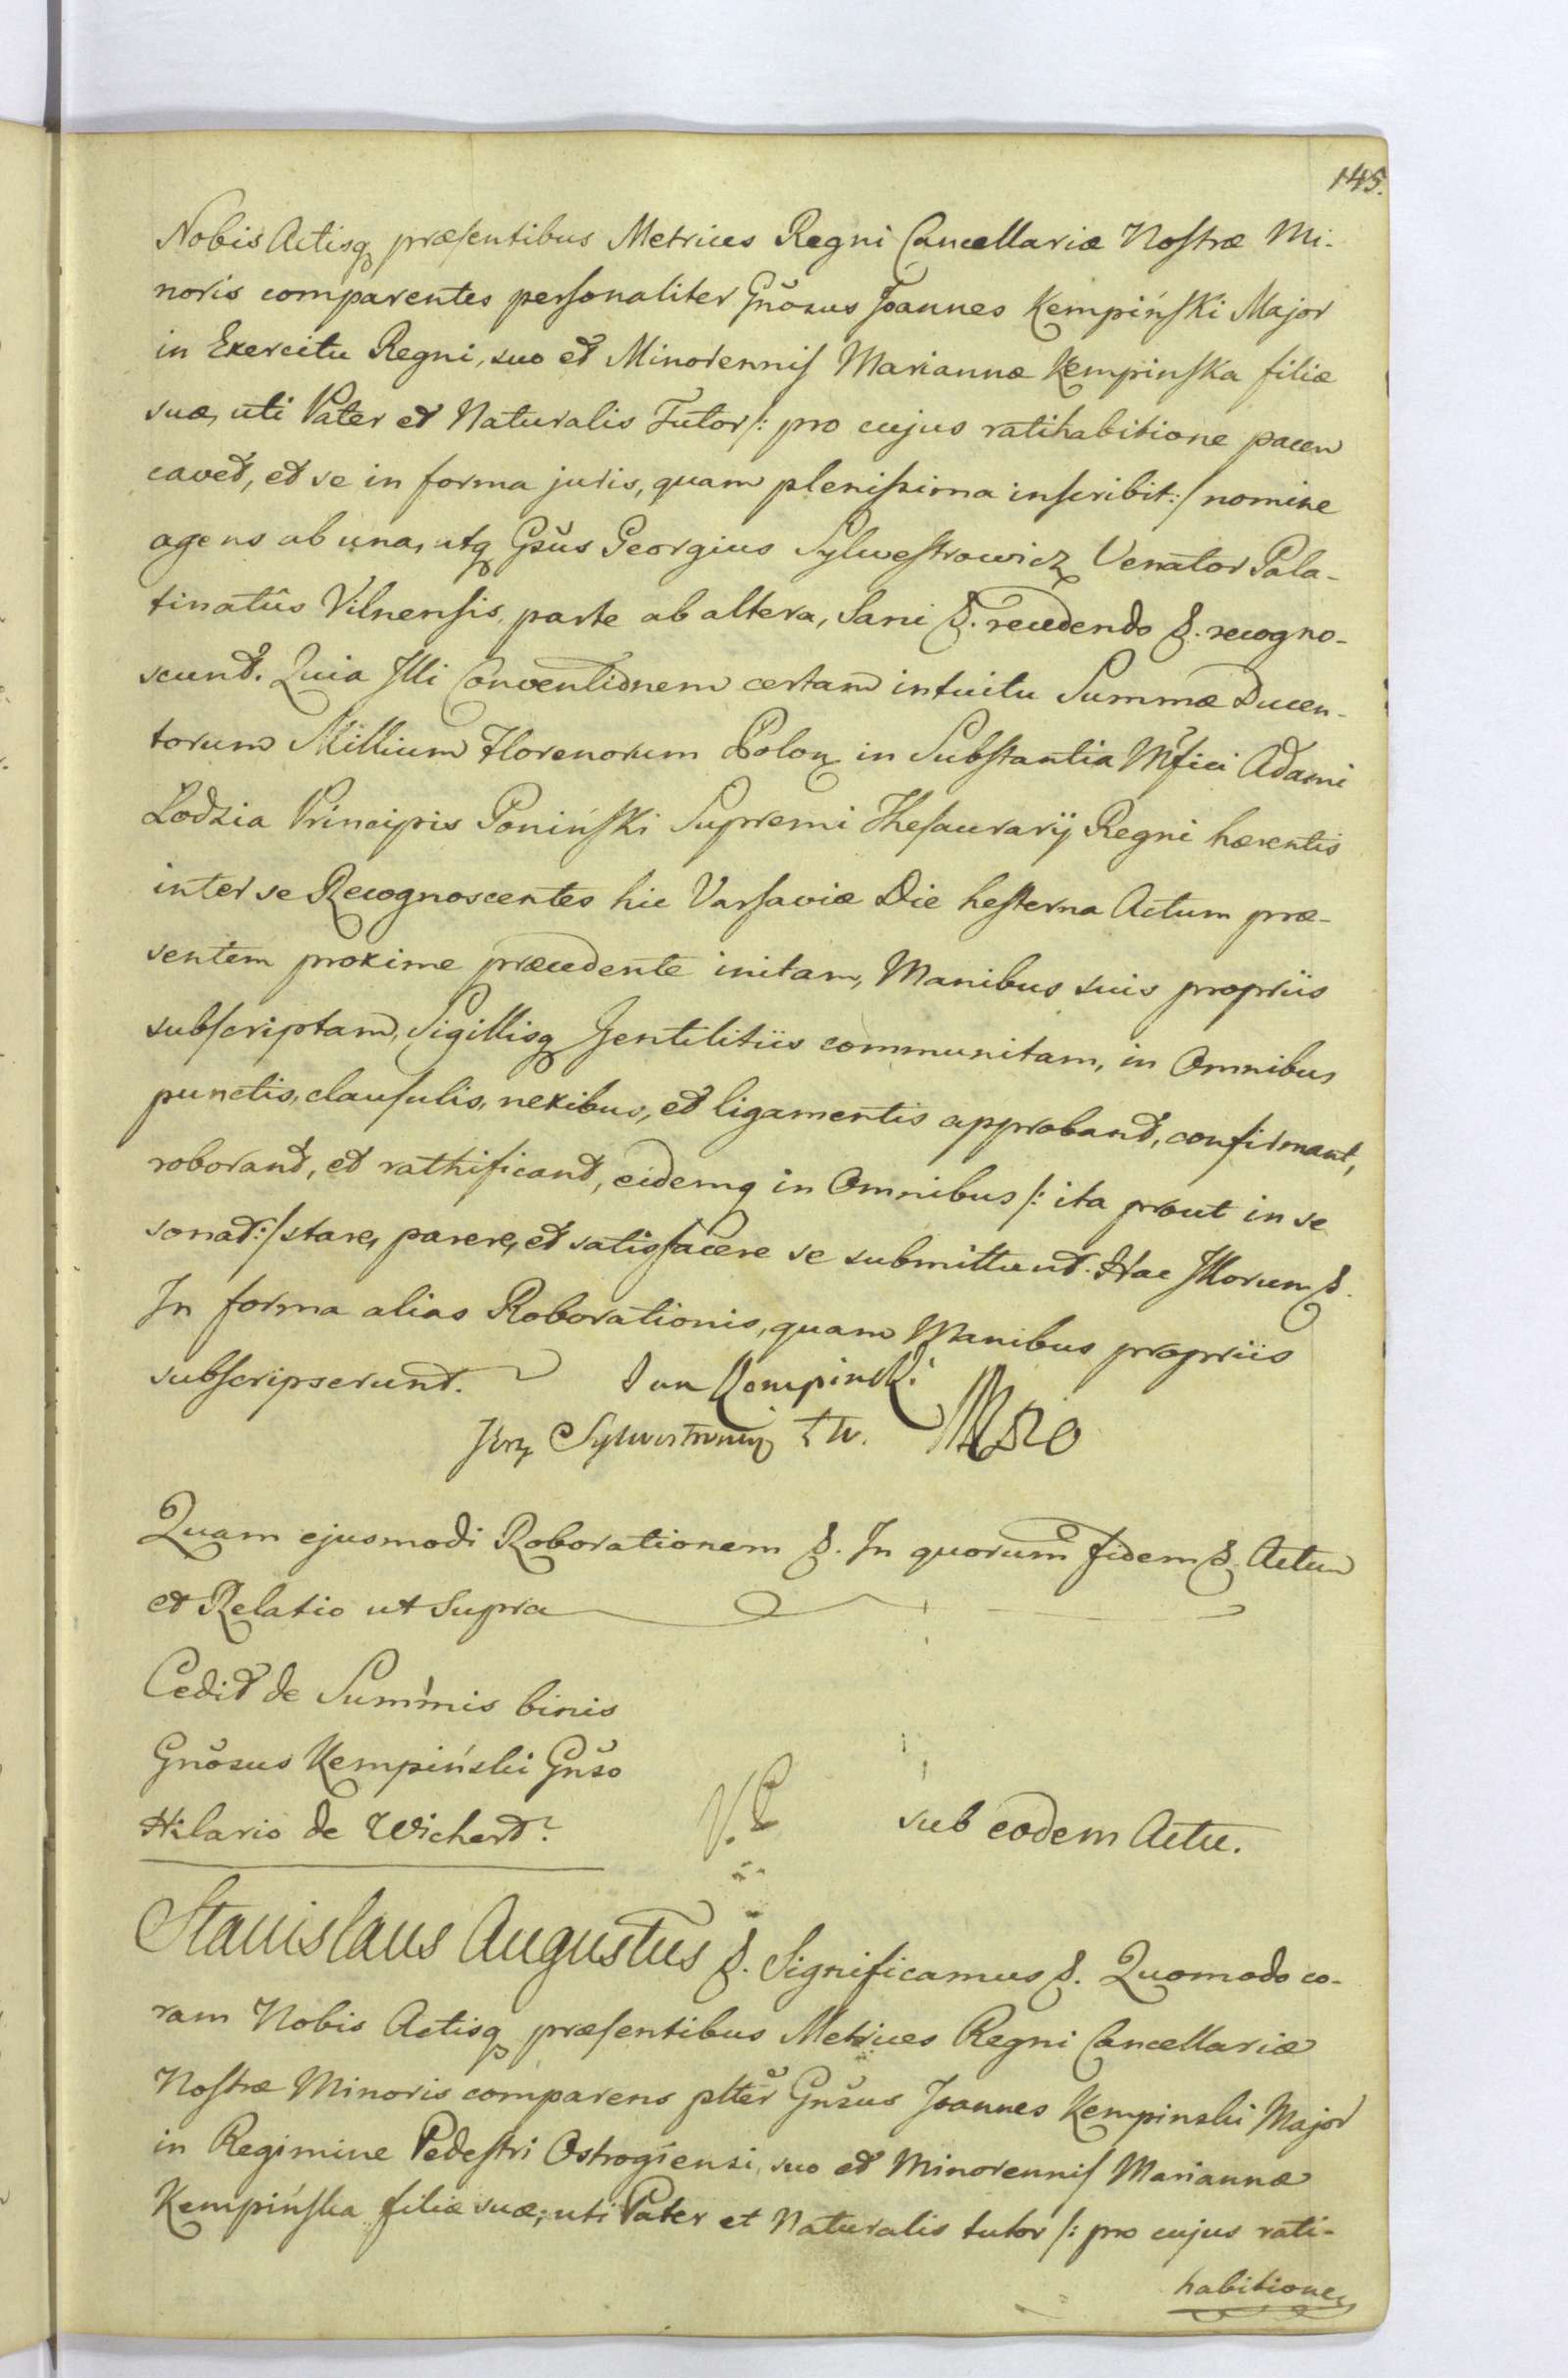 145.
Nobis Actisq præsentibus Metrices Regni Cancellariæ Nostræ Mi-
noris comparentes personaliter Gnõsus Joannes Kempiński Major
in Exercitu Regni, suo et Minorennis Mariannæ Kempinska filiæ
suæ, uti Pater et Naturalis Tutor /: pro cujus ratihabitione pacem
cavet, et se in forma juris, quam plenissima inscribit :/ nomine
agens ab una, atq Gsũs Georgius Sylwestrowicz Venator Pala-
tinatûs Vilnensis, parte ab altera, Sani &. recedendo &. recogno-
scunt. Quia Illi Conventionem certam intuitu Summæ Ducen-
torum Millium Florenorum Polon in Substantia Mfici Adami
Lodzia Principis Poniński Supremi Thesaurarij Regni hærentis
inter se Recognoscentes hic Varsaviæ Die hesterna Actum præ-
sentem proxime præcedente initam, Manibus suis propriis
subscriptam, Sigillisq Gentilitiis communitam, in Omnibus
punctis, clausulis, nexibus, et ligamentis approbant, confirmant,
roborant, et rathificant, eidemq in Omnibus /: ita prout in se
sonat :/ stare, parere, et satisfacere se submittunt. Hac Illorum &.
In forma alias Roborationis, quam Manibus propriis
subscripserunt. Jan Kempinski
Jerzy Sylwestrowicz Ł W.
Quam ejusmodi Roborationem &. In quorum fidem &. Actum
et Relatio ut Supra
Cedit de Summis binis
Gnõsus Kempiński Gnõso
Hilario de Wichert.
sub eodem Actu.
Stanislaus Augustus &. Significamus &. Quomodo co-
ram Nobis Actisq præsentibus Metrices Regni Cancellariæ
Nostræ Minoris comparens plter Gnsus Joannes Kempinski Major
in Regimine Pedestri Ostrogiensi, suo et Minorennis Mariannæ
Kempińska filiæ suæ, uti Pater et Naturalis tutor /: pro cujus rati-
habitione